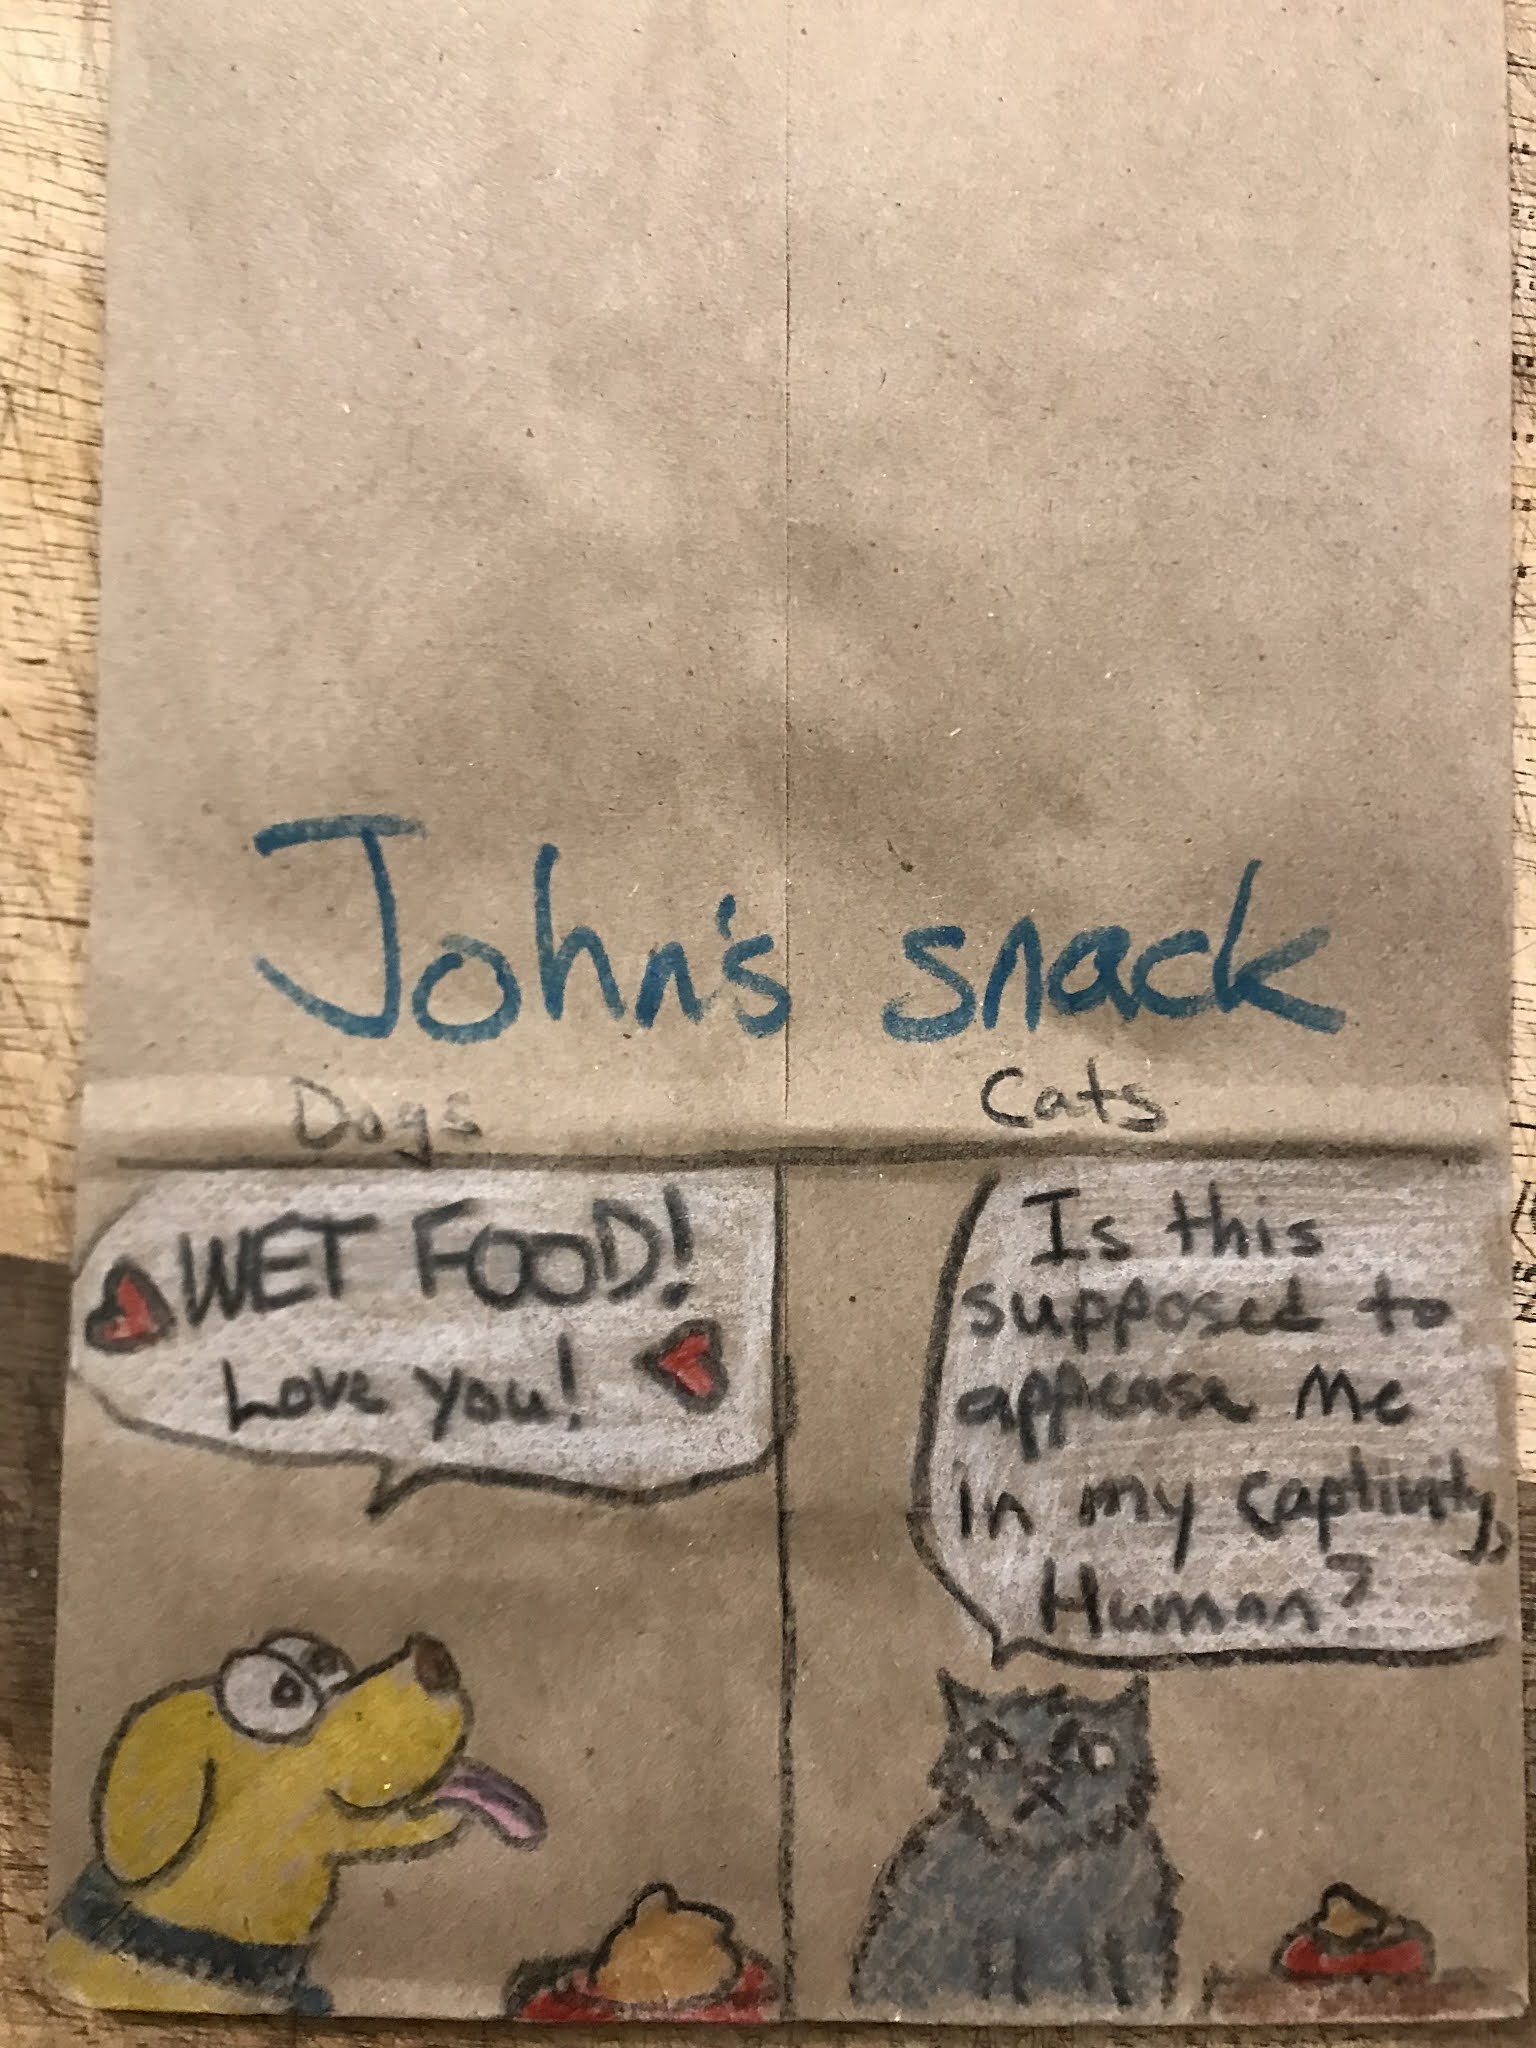 John's snack
Dogs
WET FOOD!
Love you!
Cats
Is this
supposed to
appease me
in my captivity,
Human?